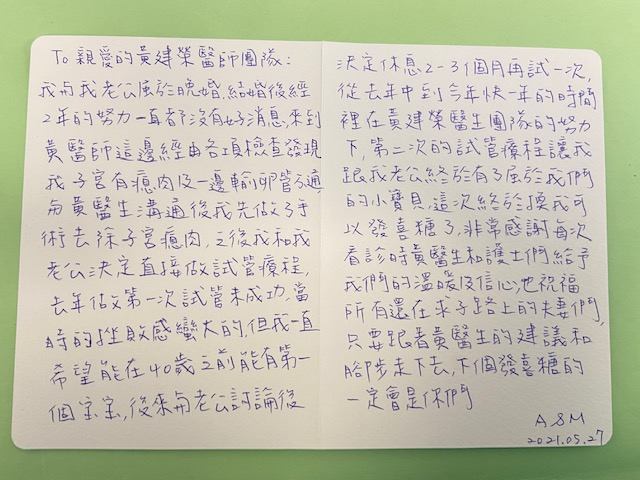 To 親愛的黃建榮醫師團隊:
我與我老公屬於晚婚,結婚後經
2年的努力一直都沒有好消息,來到
黃醫師這邊經由各項檢查發現
我子宮有瘜肉及一邊輸卵管不通,
與黃醫生溝通後我先做了手
術去除子宮瘜肉,之後我和我
老公決定直接做試管療程,
去年做第一次試管未成功,當
時的挫敗感蠻大的,但我一直
希望能在40歲之前能有第一
個寶寶,後來與老公討論後
決定休息2-3個月再試一次,
從去年中到今年快一年的時間
裡在黃建榮醫生團隊的努力
下,第二次的試管療程讓我
跟我老公終於有了屬於我們
的小寶貝,這次終於換我可
以發喜糖了,非常感謝每次
看診時黃醫生和護士們給予
我們的溫暖及信心,也祝福
所有還在求子路上的夫妻們,
只要跟著黃醫生的建議和
腳步走下去,下個發喜糖的
一定會是你們
A&M
2021.05.27